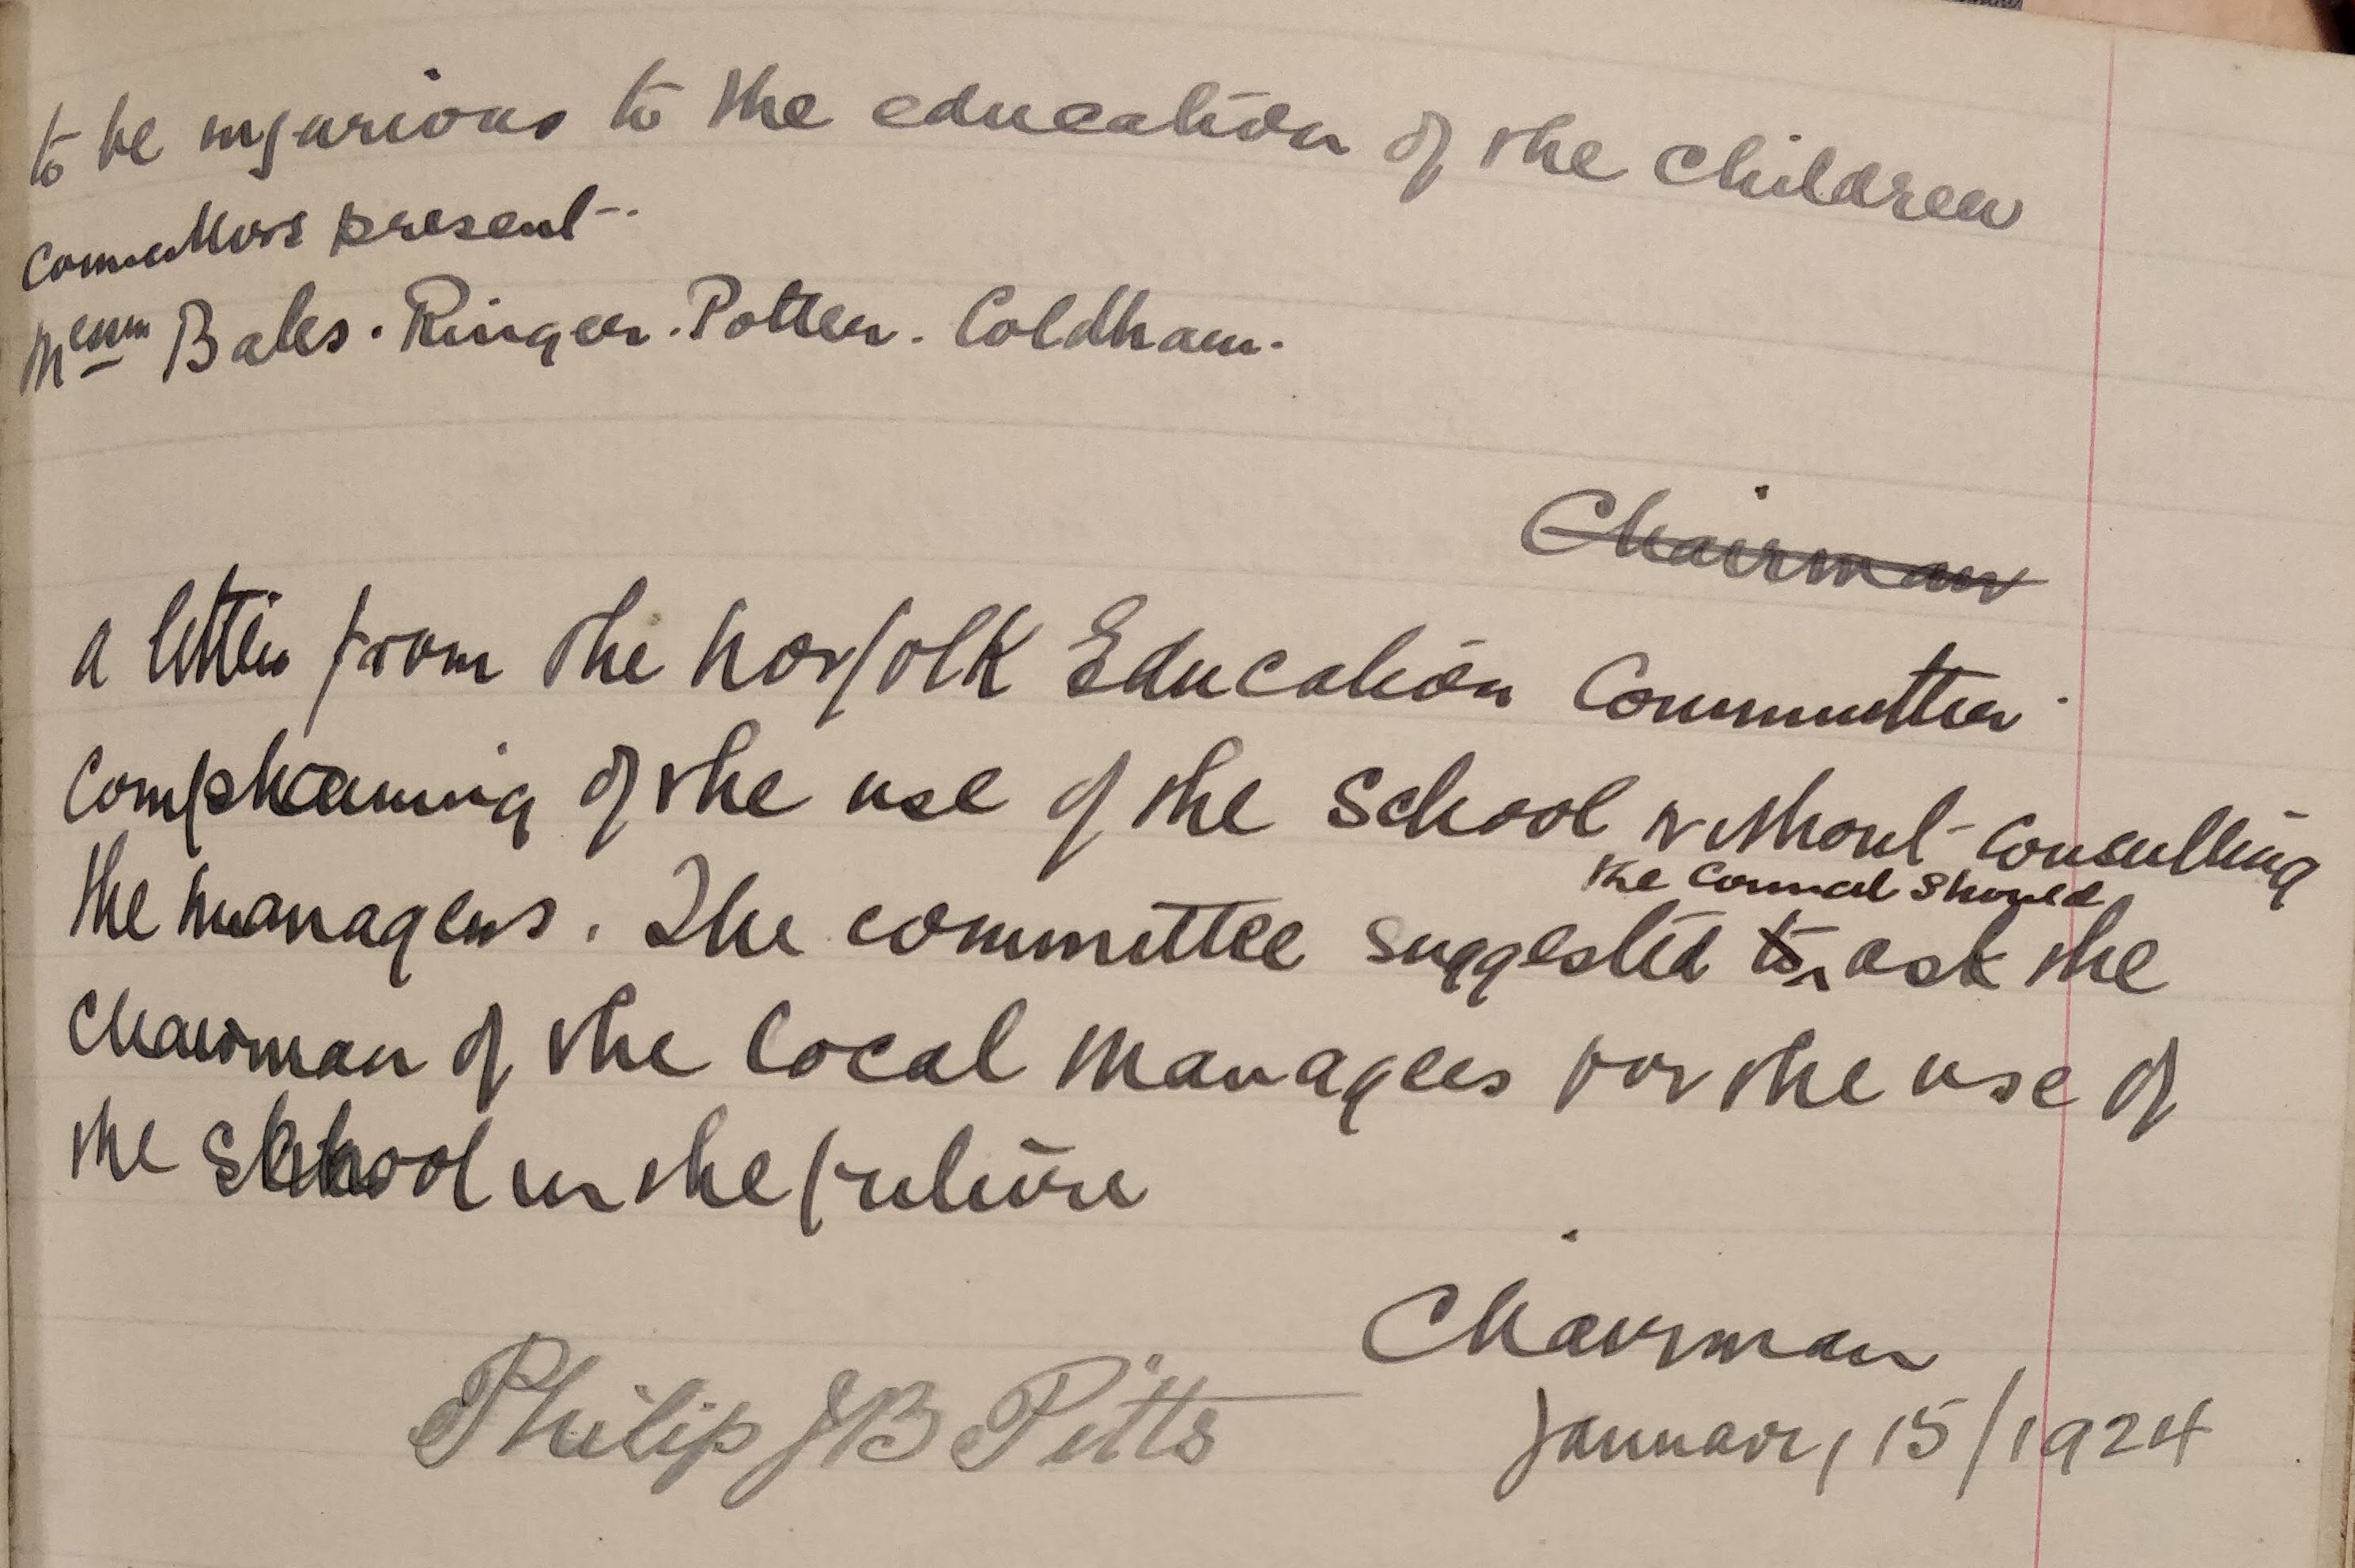 to be injurious to the education of the children
Councillors present-.
Messrs Bales. Ringer. Potter. Coldham.
Chairman
a letter from the Norfolk Education Committee.
Complaining of the use of the School without consulting
the managers. The committee suggested to the Council should ask the
Chairman of the local Managers for the use of
the School in the future
Chairman
Philip JB Pitts
January 15/1924